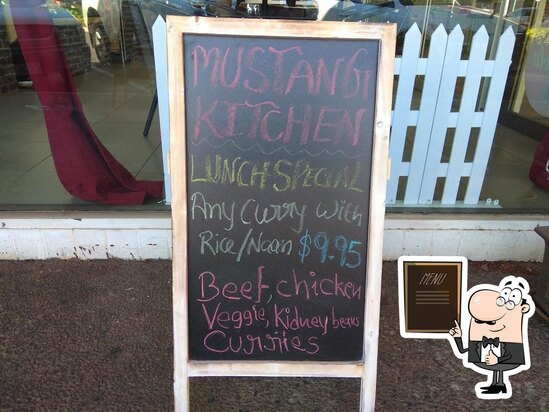 MUSTANG
KITCHEN
LUNCH SPECIAL
Any Curry with
Rice/Naan $9.95
Beef, chicken
Veggie, Kidney beans
Curries
MENU